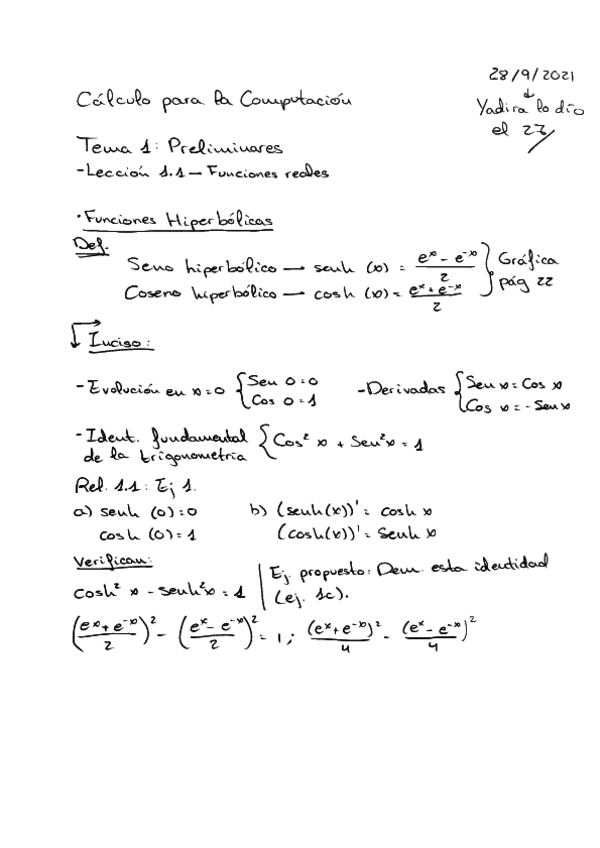 28/9/2021
↓
Yadira lo dio
el 27
Cálculo para la Computación
Tema 1: Preliminares
-Lección 1.1 — Funciones reales
· Funciones Hiperbólicas
Def.
Seno hiperbólico → senh (x) = (eˣ - e⁻ˣ)/2
Coseno hiperbólico → cosh (x) = (eˣ + e⁻ˣ)/2
} Gráfica
pág 22
Inciso:
- Evolución en x=0 { Sen 0=0
Cos 0=1
- Derivadas { Sen x = Cos x
Cos x = - Sen x
- Ident. fundamental { Cos² x + Sen² x = 1
de la trigonometría
Rel. 1.1: Ej 1.
a) senh (0)=0 b) (senh(x))' = cosh x
cosh (0)=1 (cosh(x))' = Senh x
Verifican:
cosh² x - senh² x = 1 | Ej. propuesto: Dem. esta identidad
(ej. 1c).
((eˣ + e⁻ˣ)/2)² - ((eˣ - e⁻ˣ)/2)² = 1 ; (eˣ + e⁻ˣ)²/4 - (eˣ - e⁻ˣ)²/4